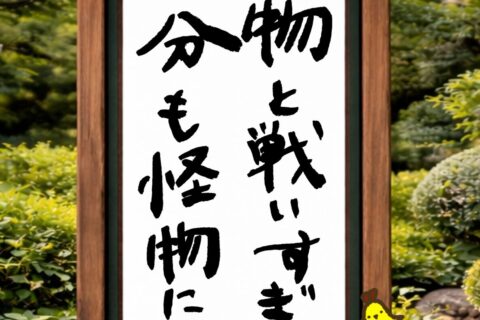 物と戦いすぎ
分も怪物に